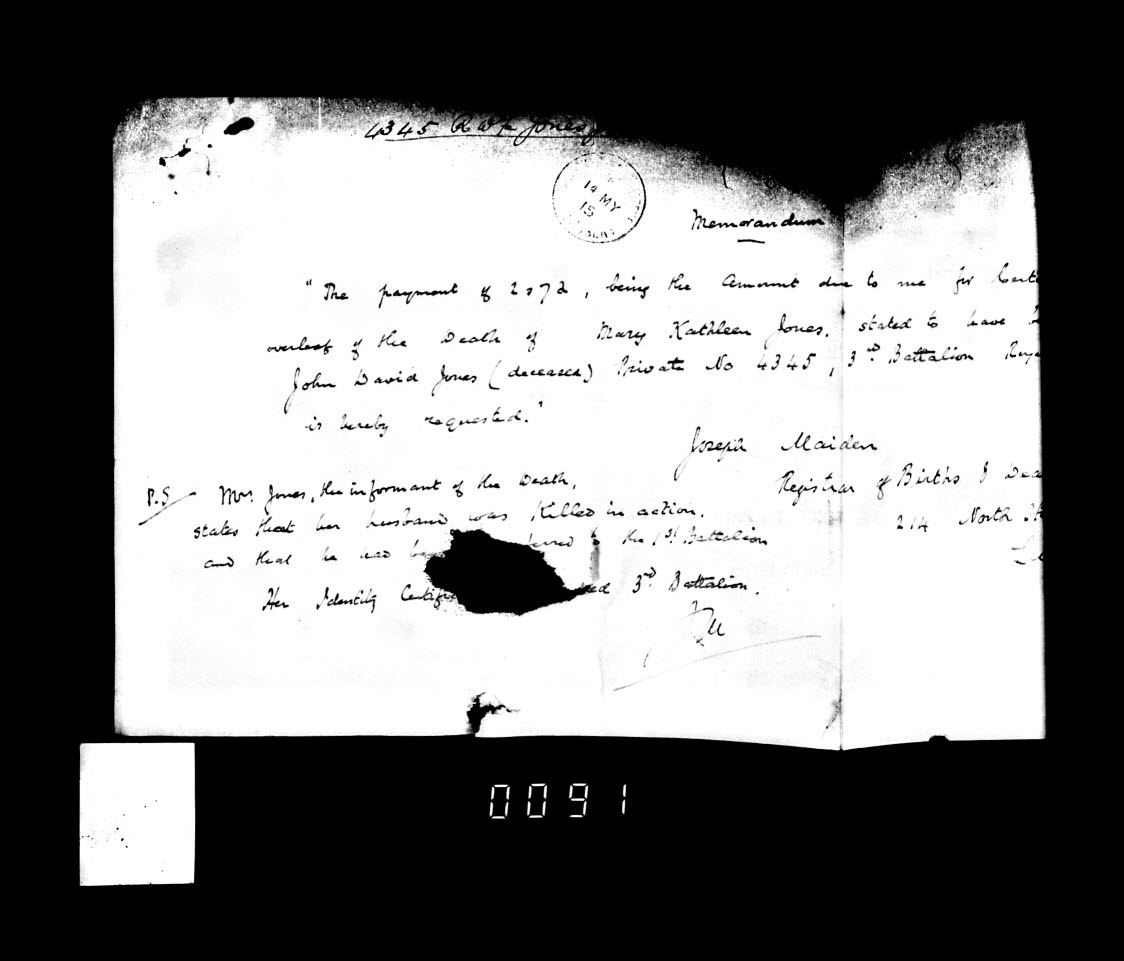 4345 RWF Jones
14 MY
15
Memorandum
"The payment of 2s7d, being the Amount due to me for
overleaf of the Death of Mary Kathleen Jones. stated to have
John David Jones (deceased) Private No 4345, 3rd Battalion
is hereby requested."
Joseph Maiden
Registrar of Births &
214 North
P.S Mrs. Jones, the informant of the Death,
states that her husband was Killed in action.
and that he had to the 1st Battalion
Her Identity 3rd Battalion.
JM
0091